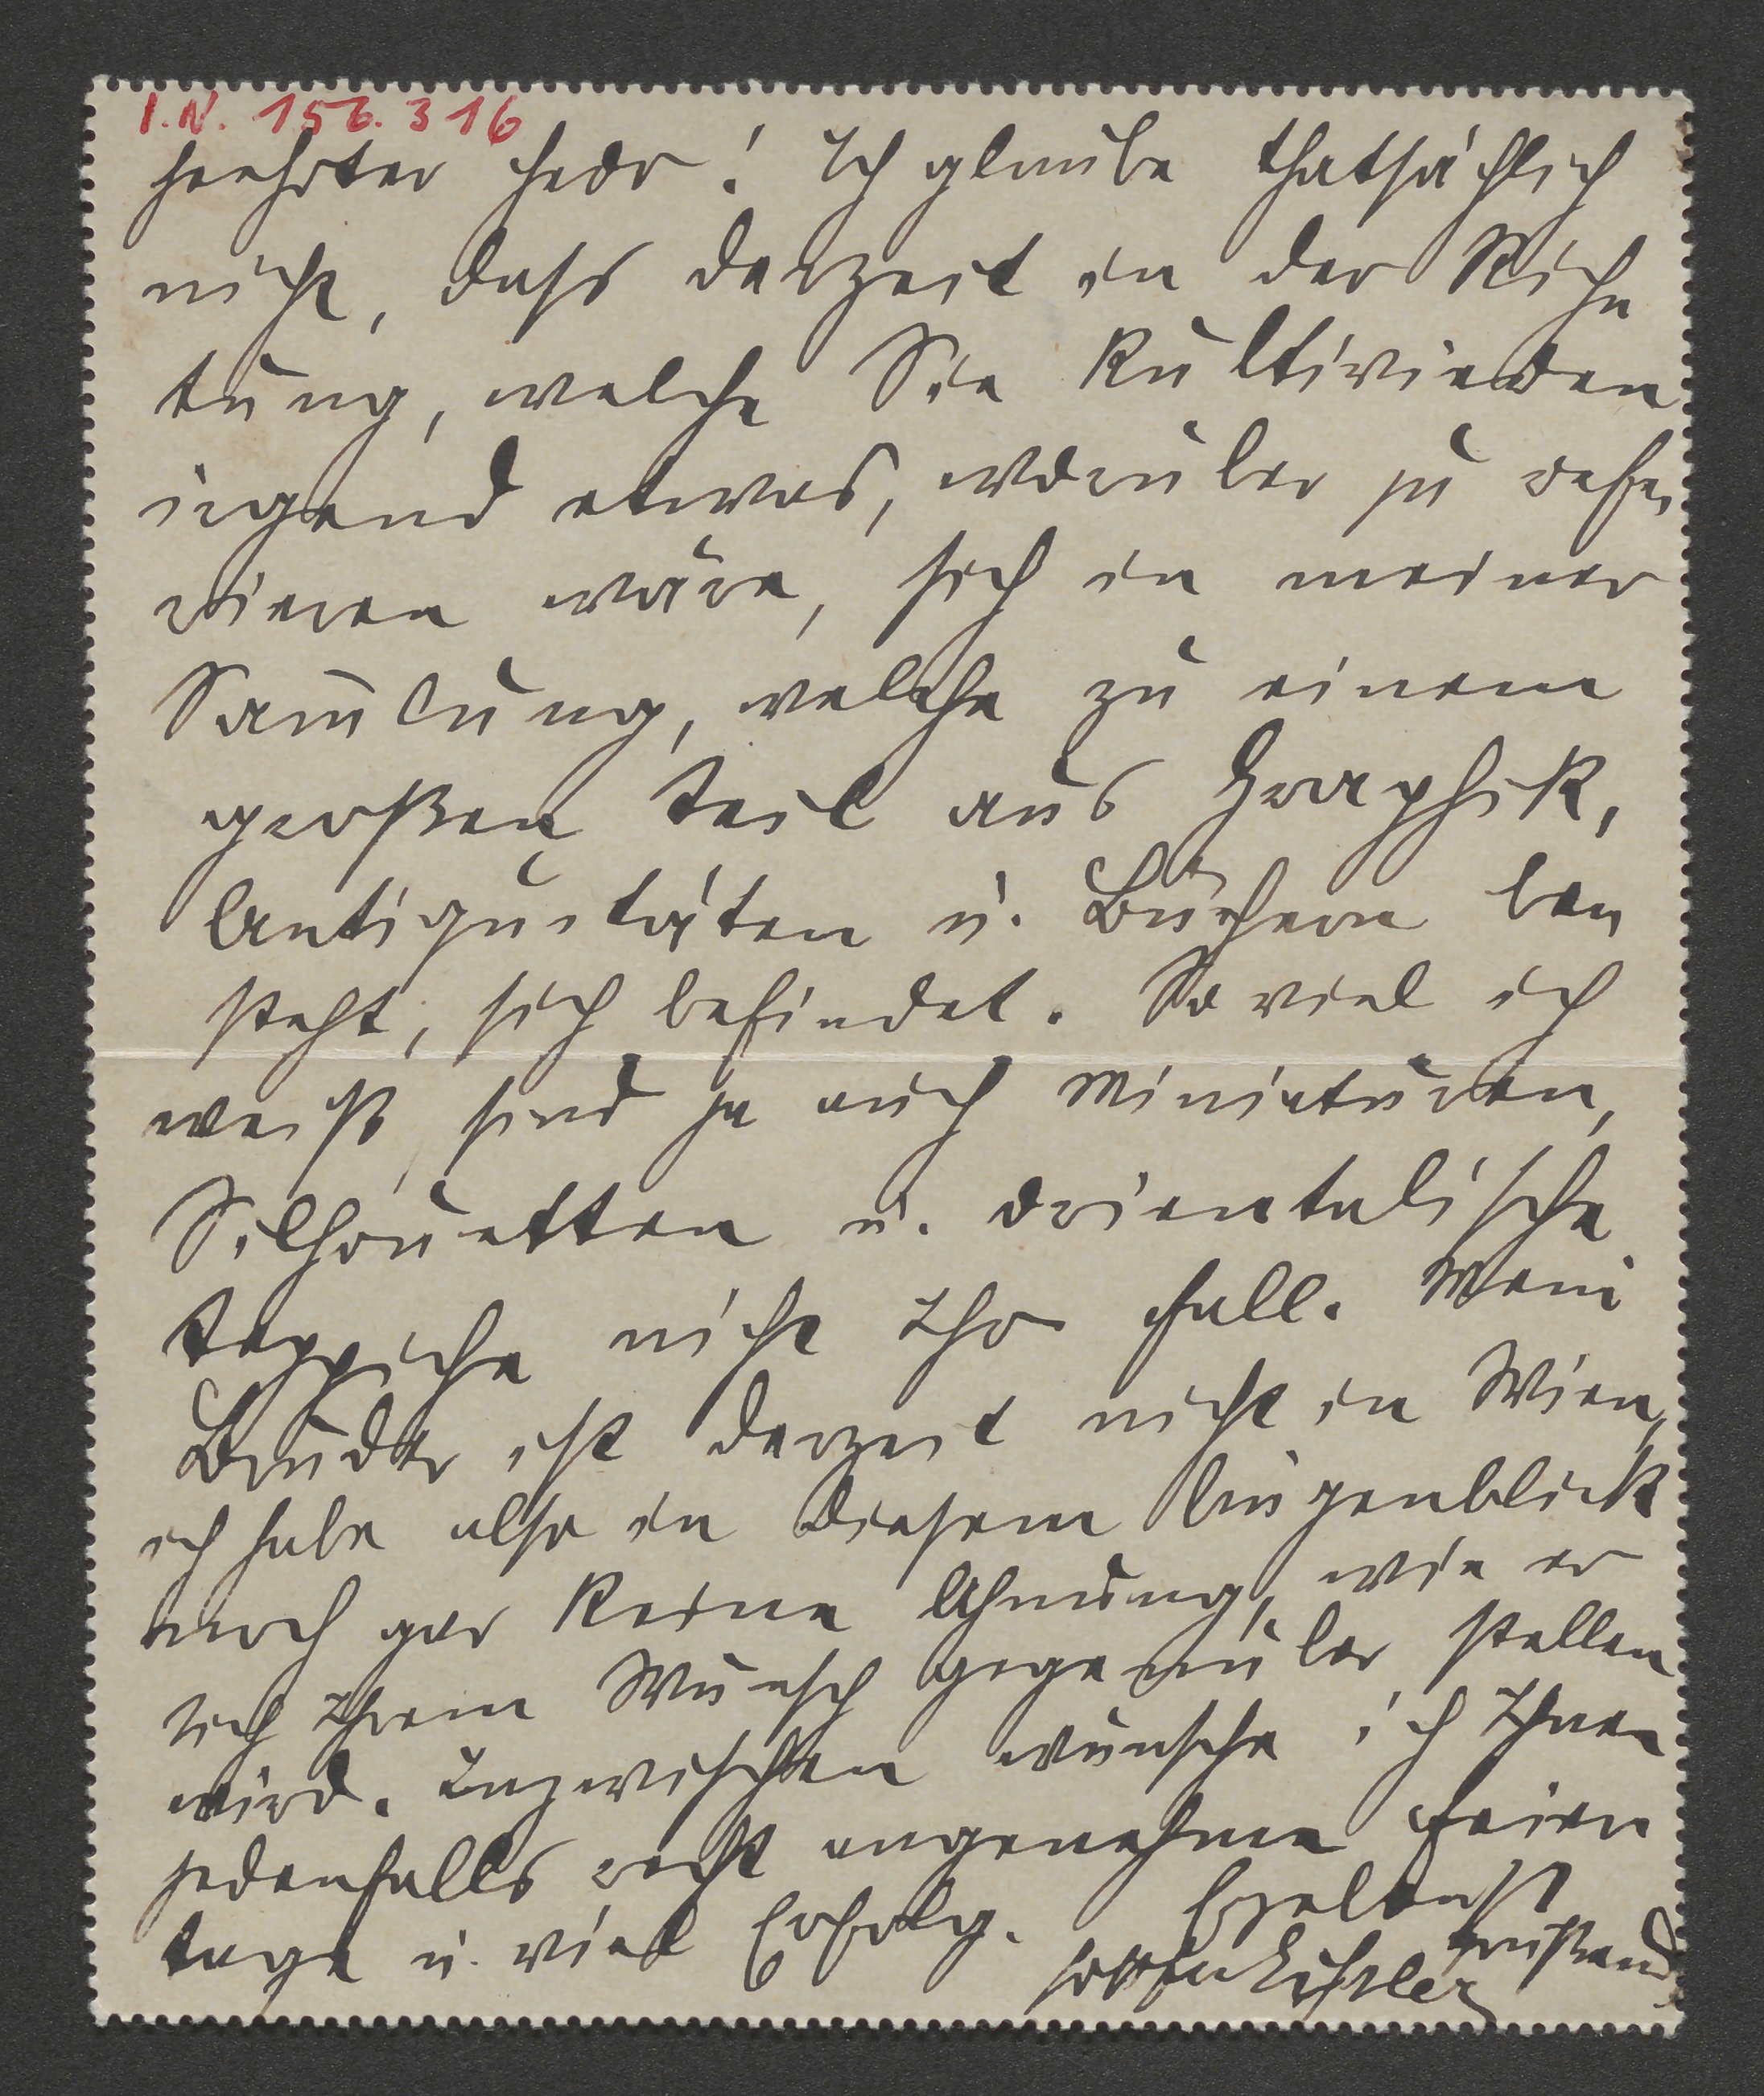 I.N. 156.316
Geehrter Herr! Ich glaube thatsächlich
nicht, dass derzeit in der Rich-
tung, welche Sie kultivieren
irgend etwas, worüber zu refe-
rieren wäre, sich in meiner
Sam̅lung, welche zu einem
großen Teil aus Graphik,
Antiquitäten u. Büchern be-
steht, sich befindet. So viel ich
weiß, sind ja auch Miniaturen,
Silhouetten u. orientalische
Teppiche nicht Ihr Fall. Mein
Bruder ist derzeit nicht in Wien,
ich habe also in diesem Augenblick
noch gar keine Ahnung, wie er
sich Ihrem Wunsch gegenüber stellen
wird. Inzwischen wünsche ich Ihnen
jedenfalls recht angenehme Feier-
tage u. viel Erfolg.
grüßend